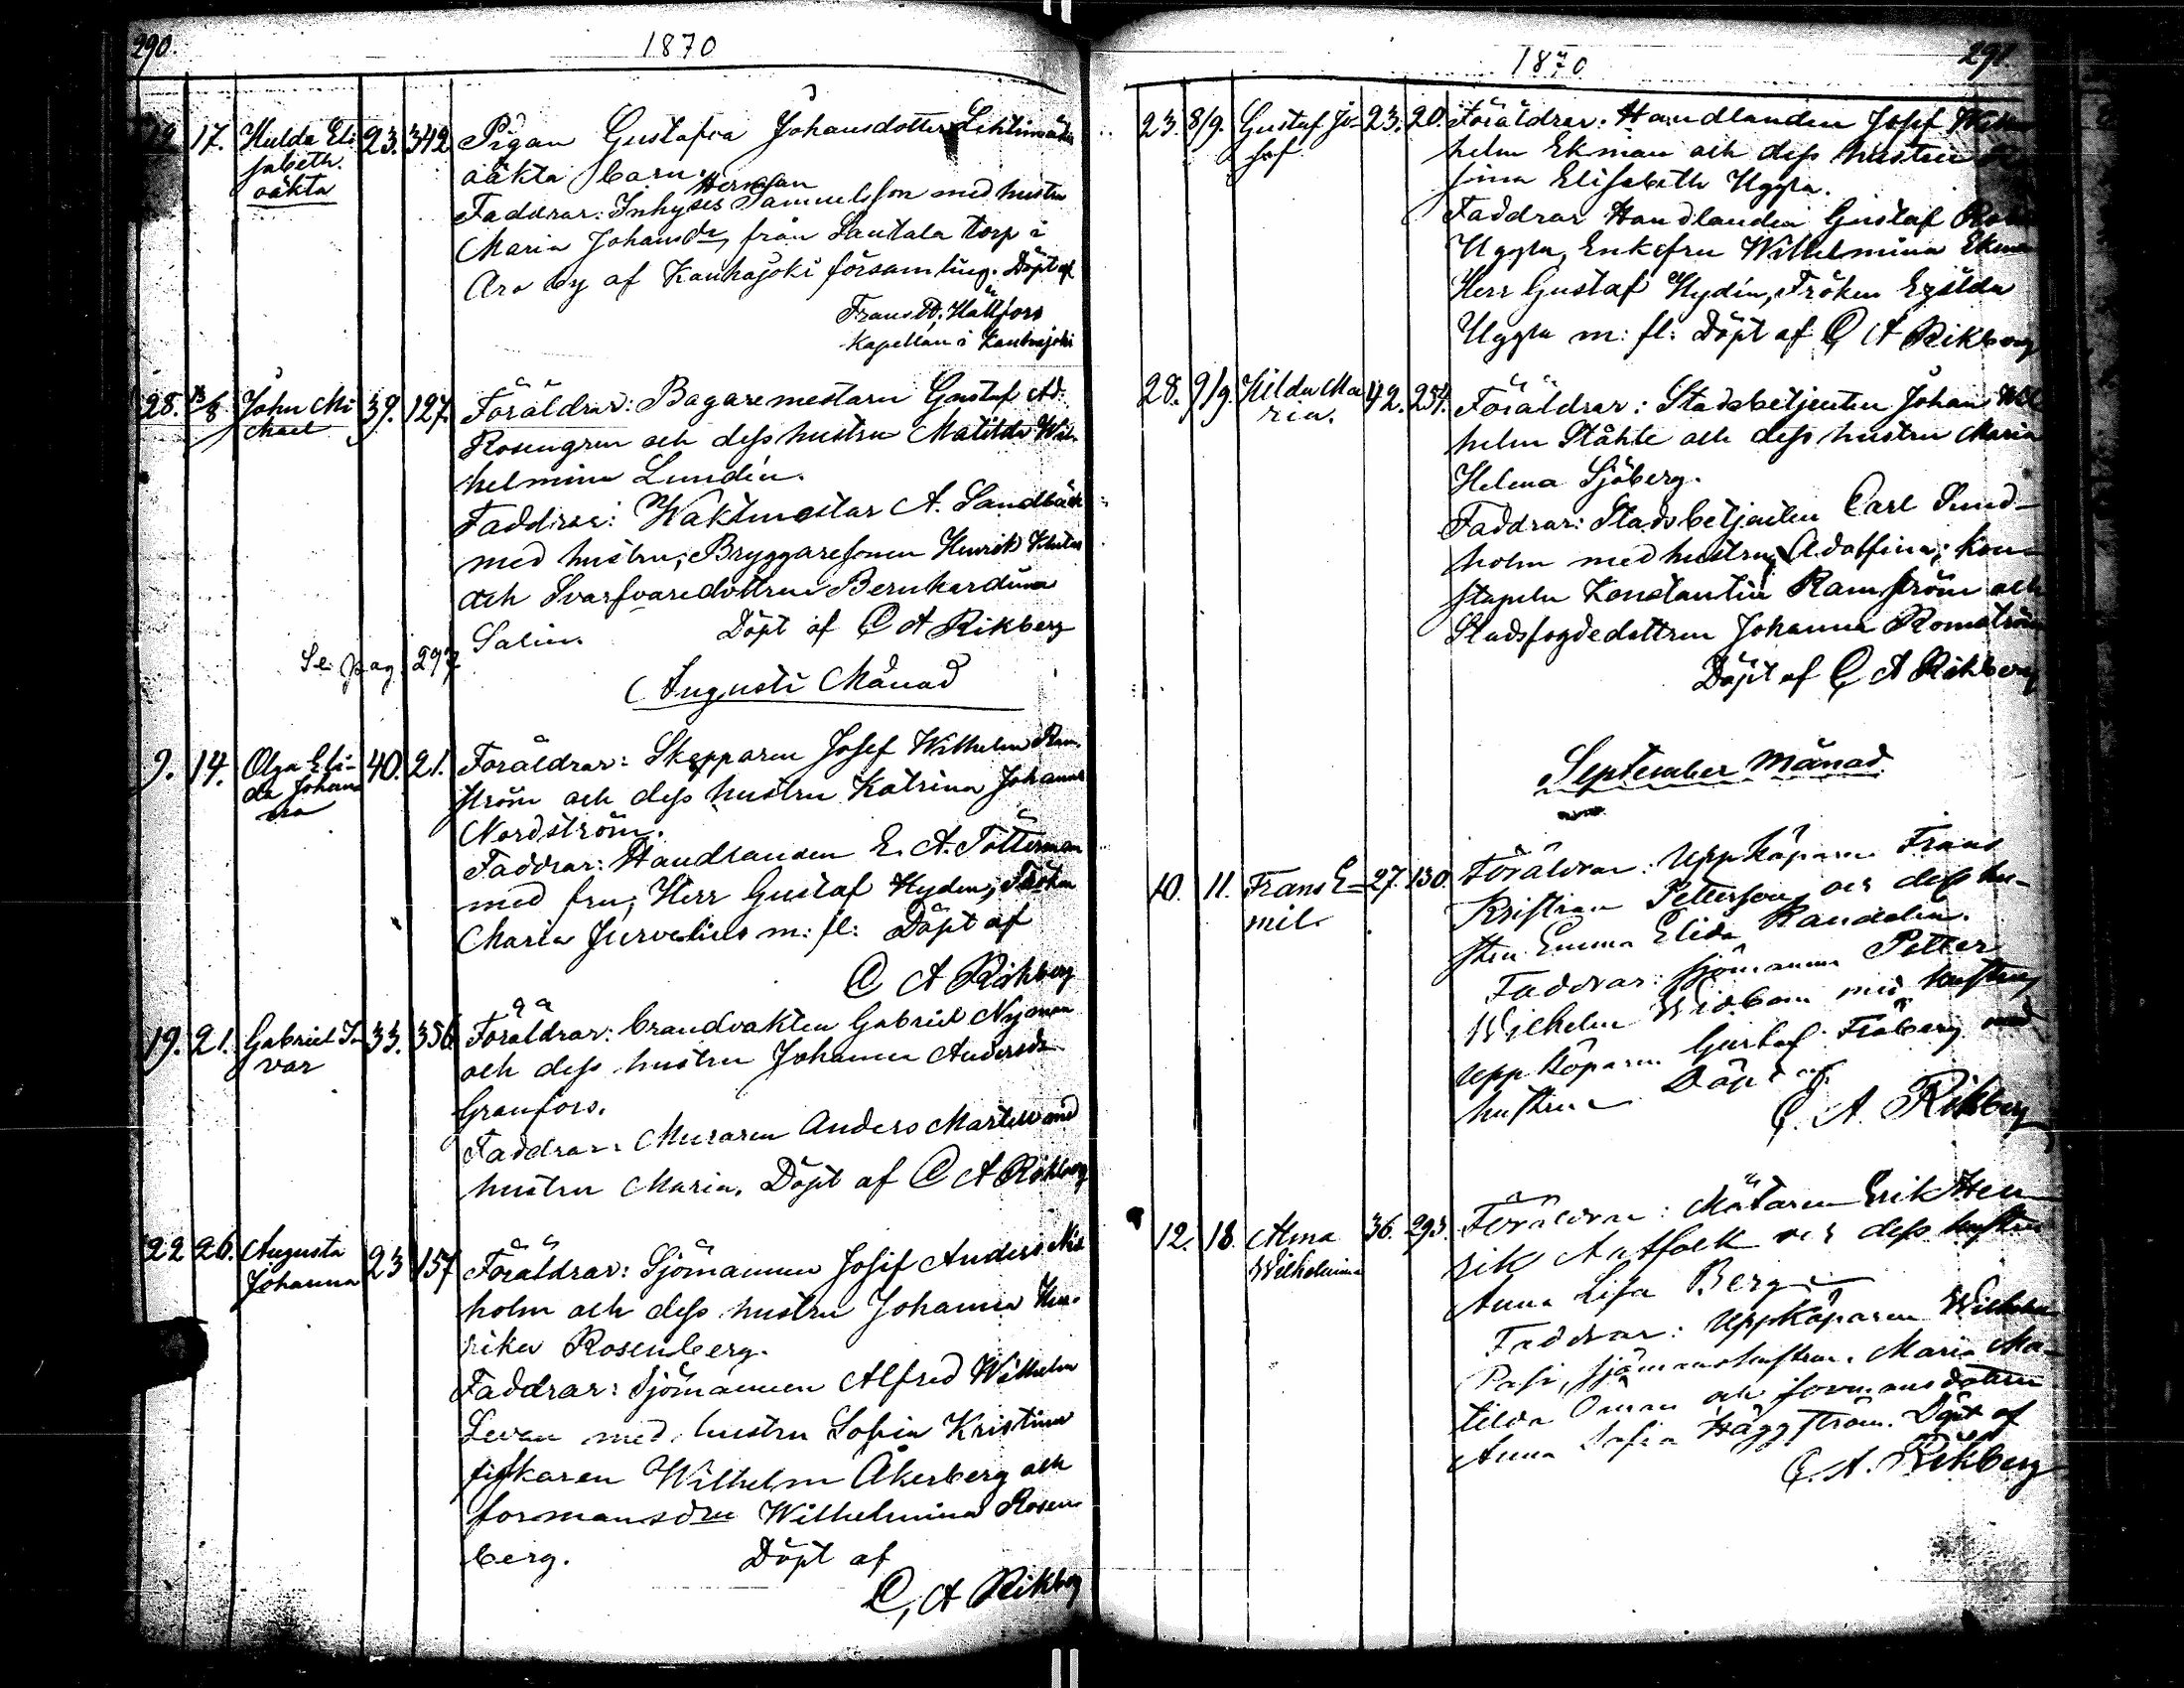 290.
1870
17. Hulda Eli 23. 342 Pigan Gustafva Johansdotter
sabeth. oäkta barn.
oäkta Herman
Faddrar: Inhyses Samuelsson med hustru
Maria Johansdr, från Lautala torp i
Aro by af Kauhajoki församling. Döpt af
Frans Hällfors
Kapellan i Kauhajoki
28. 8 John Mi 39. 127. Föräldrar: Bagaremestarn Gustaf Ad.
chael Rosengren och dess hustru Matilda Wil-
helmina Lundén.
Faddrar: Waktmestar A. Sandbäck
med hustru, Bryggaresonen Henrik
och Svarfvaredottren Bernhardina
Salin. Döpt af C A Rikberg
Se. pag. 297
Augusti Månad
9. 14. Olga Eli- 40. 21. Föräldrar: Skepparen Josef Wilhelm Ram-
da Johan ström och dess hustru Katrina Johanna
na Nordström.
Faddrar: Handlanden E. A. Tötterman
med fru, Herr Gustaf Hydén, Fröken
Maria Jurvelius m: fl: Döpt af
C A Rikberg
19. 21. Gabriel I- 33. 356. Föräldrar: brandvakten Gabriel Nyman
var och dess hustru Johanna Andersdr
Granfors.
Faddrar: Muraren Anders Martell med
hustru Maria. Döpt af C A Rikberg
22 26. Augusta 23 157 Föräldrar: Sjömannen Josef Anders
Johanna holm och dess hustru Johanna Hen-
rika Rosenberg.
Faddrar: Sjömannen Alfred Wilhelm
Levan med hustru Sofia Kristina
fiskaren Wilhelm Åkerberg och
formansdrn Wilhelmina Rosen-
berg. Döpt af
C, A Rikberg
1870
291.
23. 8/9. Gustaf Jo- 23. 20. Föräldrar: Handlanden Josef
sef helm Ekman och dess hustru
sina Elisabeth Uggla.
Faddrar Handlanden Gustaf
Uggla, Enkefru Wilhelmina Ekman
Herr Gustaf Hydén, Fröken
Uggla m: fl: Döpt af C A Rikberg
28. 9/9. Hilda Ma 42. 254. Föräldrar: Stadsbetjenten Johan Wil
ria. helm Ståhle och dess hustru Maria
Helena Sjöberg.
Faddrar: Stadsbetjenten Carl Sund-
holm med hustru Adolfina, kon-
stapeln Konstantin Ramström och
Stadsfogdedottren Johanna Ramström
Döpt af C A Rikberg
September månad
10. 11. Frans E- 27. 130. Föräldrar: Uppköparen Frans
mil. Kristian Petterson och dess hu-
stru Emma Elida Randelin.
Faddrar: sjömannen Petter
Wilhelm Widbom med hustru,
uppköparen Gustaf Fröberg med
hustru Döpt af
C. A. Rikberg
12. 18. Alma 36. 293. Föräldrar: Mätaren Erik Hen
Wilhelmina rik Antfolk och dess hustru
Anna Lisa Berg
Faddrar: Uppköparen Wilhelm
Pasi, sjömanshustrun Maria Ma-
tilda Öman och formansdottren
Anna Sofia Häggström. Döpt af
C. A. Rikberg